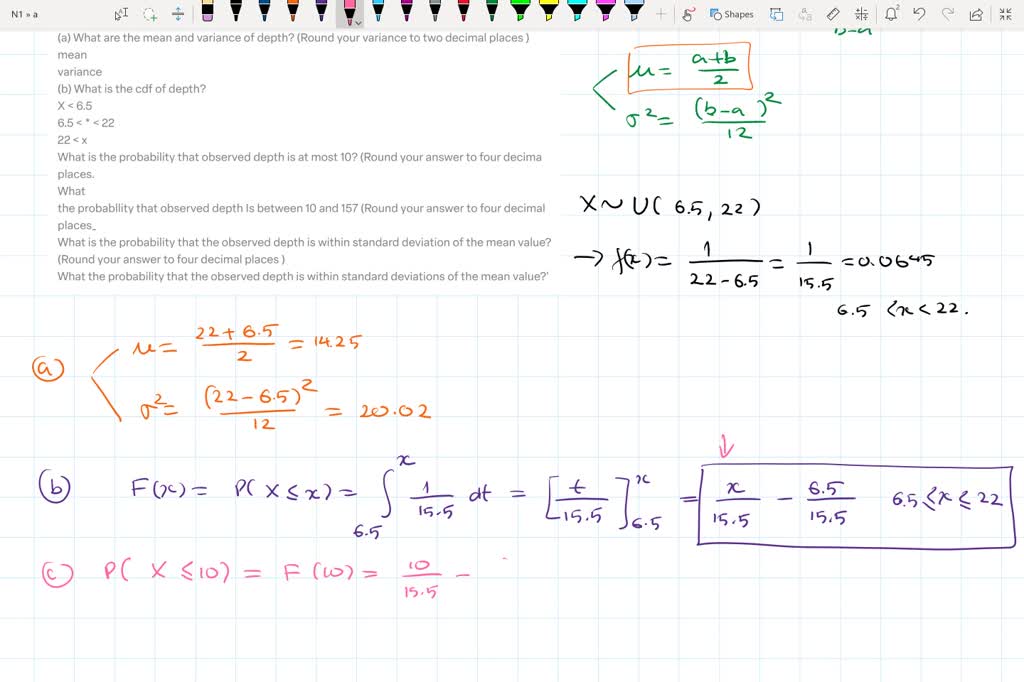 N1 » a
Shapes
(a) What are the mean and variance of depth? (Round your variance to two decimal places )
mean
variance
(b) What is the cdf of depth?
X < 6.5
6.5 < * < 22
22 < x
What is the probability that observed depth is at most 10? (Round your answer to four decima
places.
What
the probabllity that observed depth Is between 10 and 157 (Round your answer to four decimal
places_
What is the probability that the observed depth is within standard deviation of the mean value?
(Round your answer to four decimal places )
What the probability that the observed depth is within standard deviations of the mean value?'
b-a
μ = (a+b)/2
σ² = (b-a)²/12
X ~ U( 6.5, 22 )
→ f(x) = 1/(22-6.5) = 1/15.5 = 0.0645
6.5 < x < 22.
(a) μ = (22+6.5)/2 = 14.25
σ² = (22-6.5)²/12 = 20.02
(b) F(x) = P( X ≤ x ) = ∫_{6.5}^{x} 1/15.5 dt = [t/15.5]_{6.5}^{x} = x/15.5 - 6.5/15.5 6.5 ≤ x ≤ 22
(c) P( X ≤ 10 ) = F (10) = 10/15.5 -